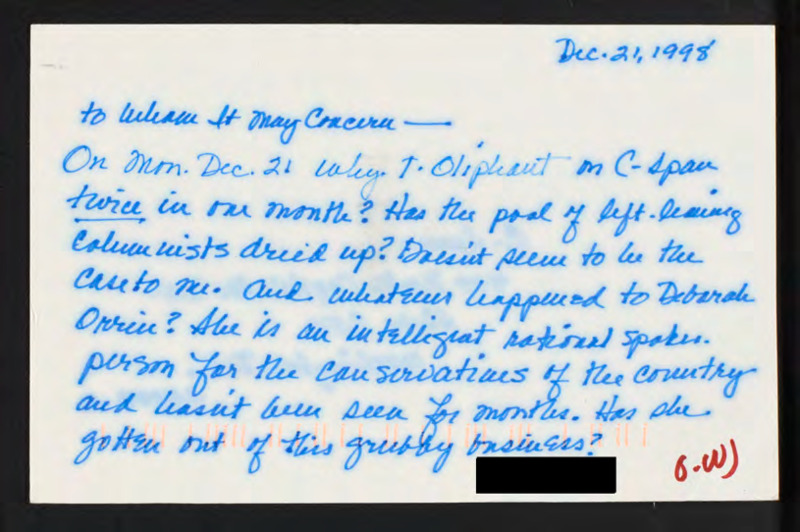 Dec. 21, 1998
to Whom It May Concern —
On Mon. Dec. 21 why T. Oliphant on C-Span
twice in one month? Has the pool of left-leaning
Columnists dried up? Doesn't seem to be the
case to me. And whatever happened to Deborah
Orrin? She is an intelligent rational spokes-
person for the conservatives of the country
and hasn't been seen for months. Has she
gotten out of this grubby business?